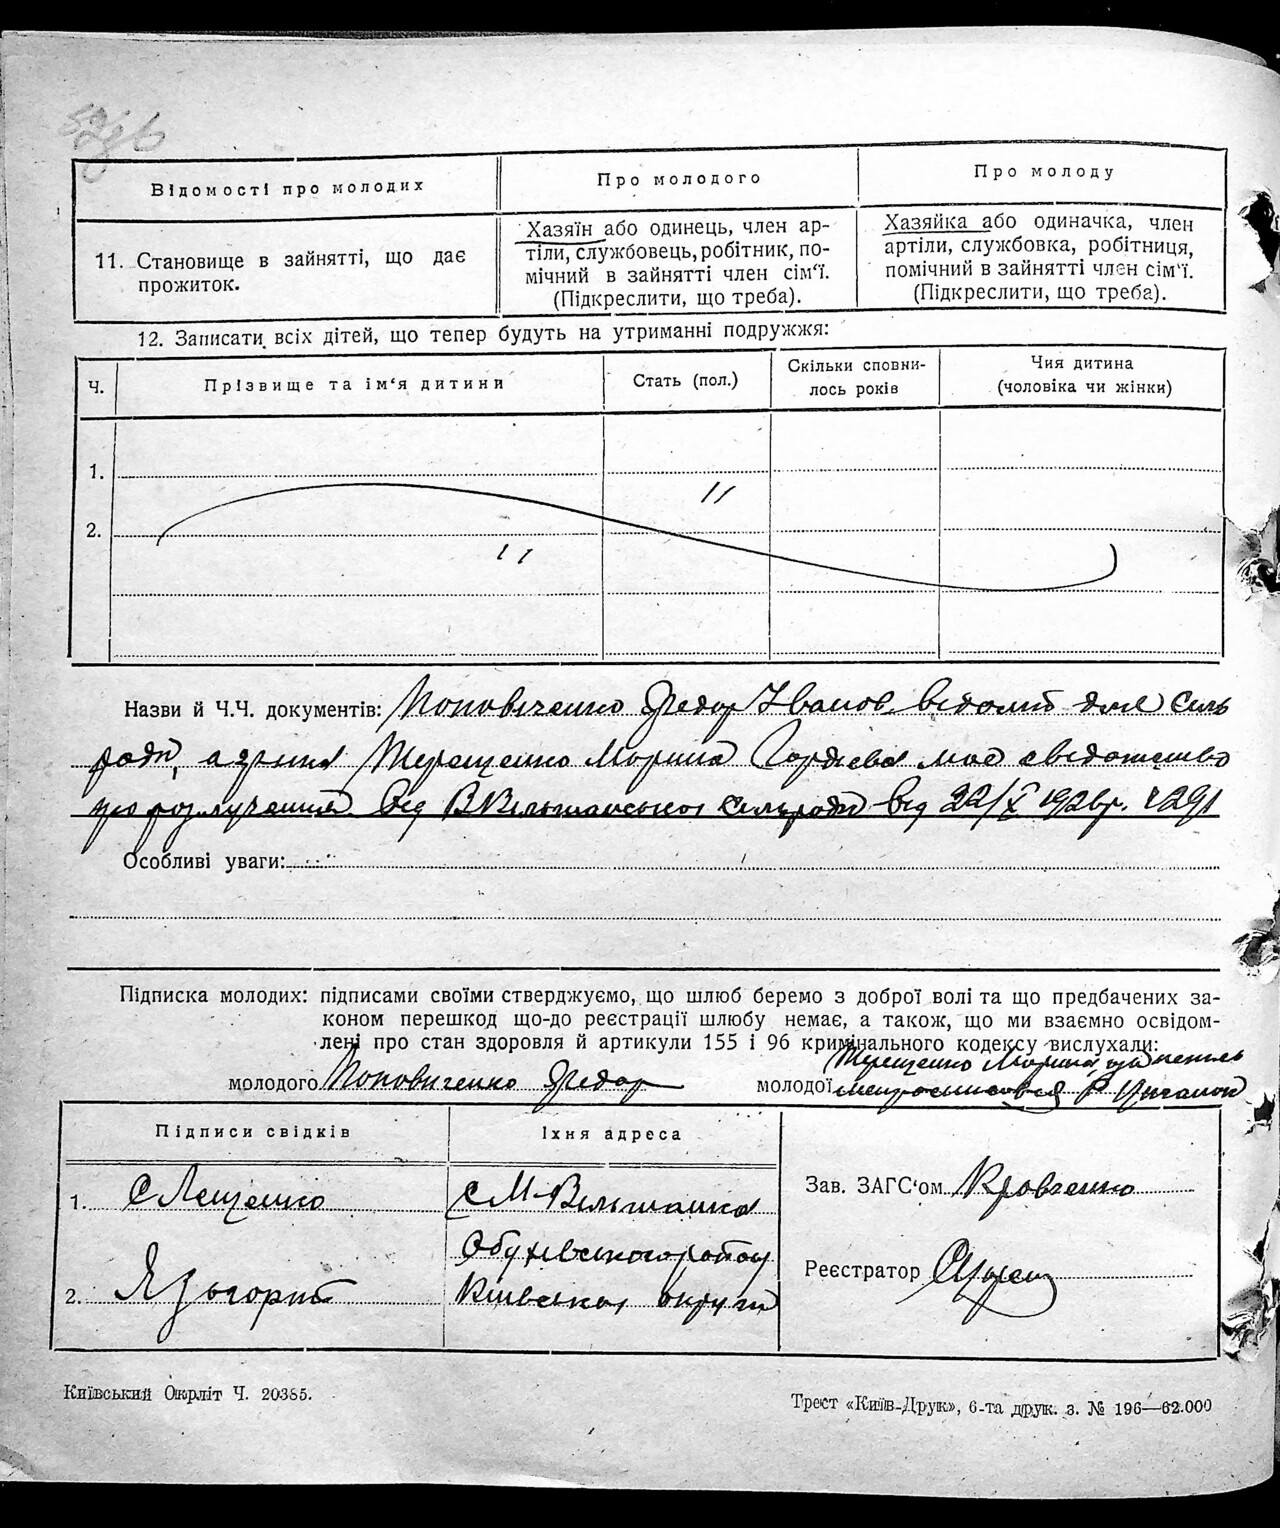 Відомості про молодих
Про молодого
Про молоду
11. Становище в зайнятті, що дає
прожиток.
Хазяїн або одинець, член ар-
тіли, службовець, робітник, по-
мічний в зайнятті член сім'ї.
(Підкреслити, що треба).
Хазяйка або одиначка, член
артіли, службовка, робітниця,
помічний в зайнятті член сім'ї.
(Підкреслити, що треба).
12. Записати всіх дітей, що тепер будуть на утриманні подружжя:
Ч.
Прізвище та ім'я дитини
Стать (пол.)
Скільки сповни-
лось років
Чия дитина
(чоловіка чи жінки)
1.
"
2.
"
Назви й Ч.Ч. документів: Поповиченко Федор Іванов відомий для Сіль
ради, а Терещенко Марина Гордієва має свідотство
про розлучення від В Вільшанської сільради від 22/X 1926 р. 291
Особливі уваги:
Підписка молодих: підписами своїми стверджуємо, що шлюб беремо з доброї волі та що предбачених за-
коном перешкод що-до реєстрації шлюбу немає, а також, що ми взаємно освідом-
лені про стан здоровля й артикули 155 і 96 кримінального кодексу вислухали:
Терещенко Марина
молодого Поповиченко Федор
молодої
Підписи свідків
Їхня адреса
1. С Лещенко
С М-Вільшанка
Зав. ЗАГС'ом Кравченко
Обухівського району
Реєстратор
2.
Київської округи
Київський Окрліт Ч. 20385.
Трест «Київ-Друк», 6-та друк. з. № 196—62.000